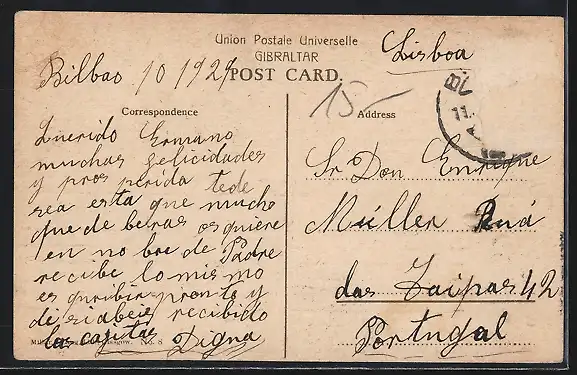 Union Postale Universelle
GIBRALTAR
POST CARD.
Bilbao 10 1924
Lisboa
15-
Correspondence
Address
Querido Ermano
muchas felicidades
y pros perida tede
sea esta que mucho
que de beras os quiere
en no bre de Padre
recibe lo mismo
es quribir pronto y
di si abeis recibido
las cajitas Digna
Sr Don Enrique
Müller Ruá
das Taipas 42
Portugal
No. 8